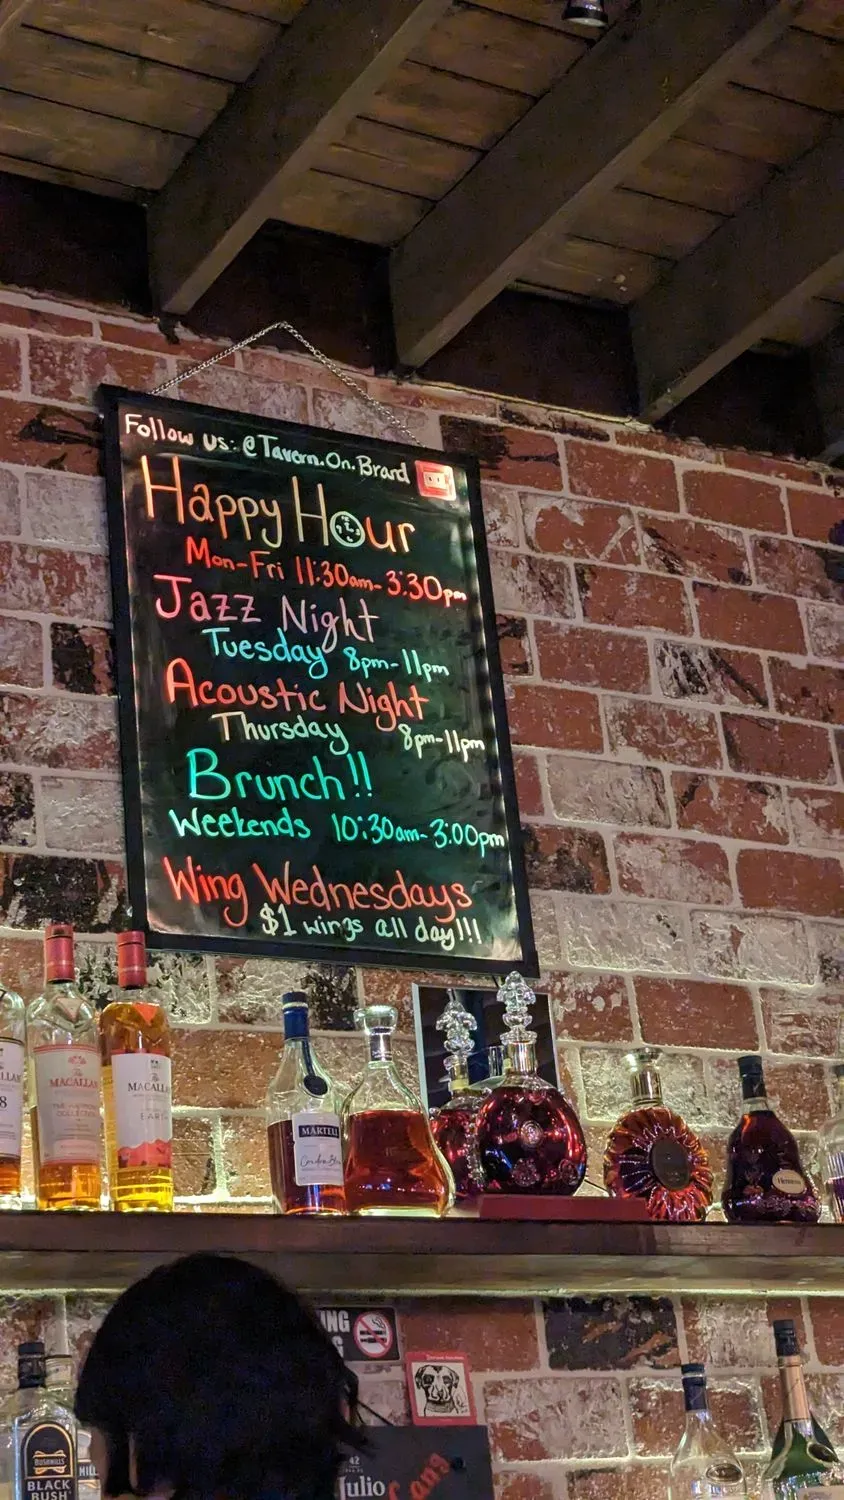 Follow us: @Tavern.On.Brard
Happy Hour
Mon-Fri 11:30am-3:30pm
Jazz Night
Tuesday 8pm-11pm
Acoustic Night
Thursday 8pm-11pm
Brunch!!
Weekends 10:30am-3:00pm
Wing Wednesdays
$1 wings all day!!!
The
MACALLAN
The
MACALLAN
MARTELL
Cordon Bleu
Hennessy
BUSHMILLS
BLACK
BUSH
42
Julio